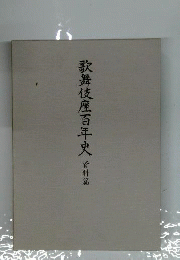 歌舞伎座百年史 資料篇